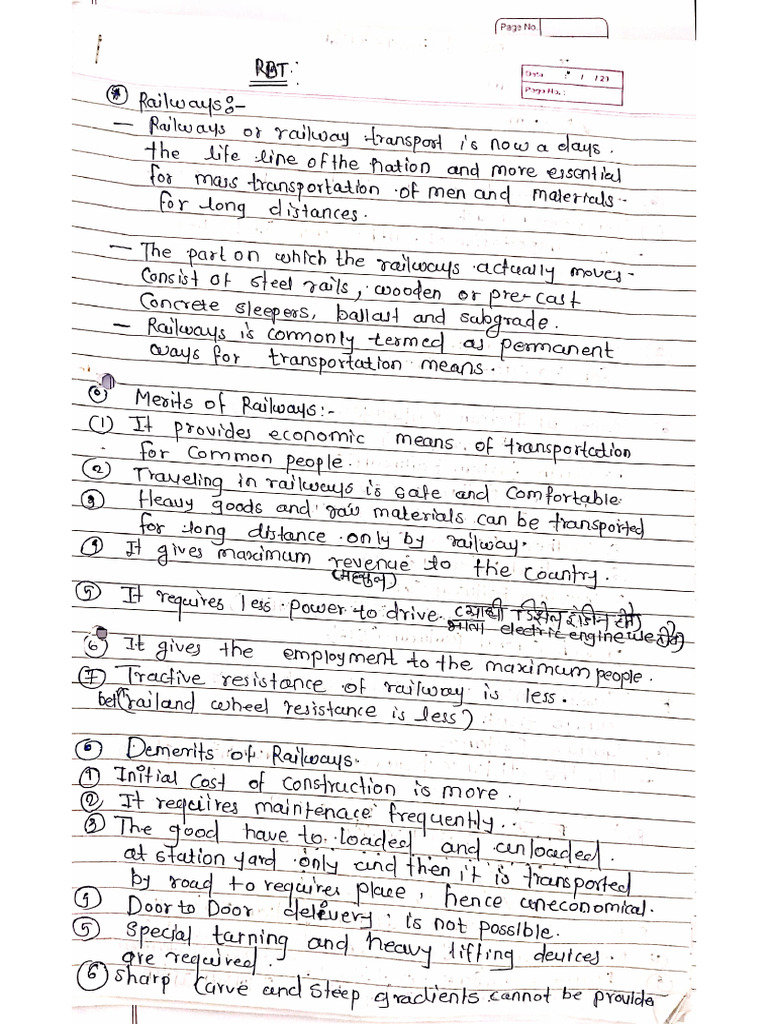 Page No.
RBT:
Date : / /21
Page No.:
Railways:-
— Railways or railway transport is now a days.
the life line of the nation and more essential
for mass transportation of men and materials
for long distances.
— The part on which the railways actually moves
Consist of steel rails, wooden or pre-cast
Concrete sleepers, ballast and subgrade.
— Railways is commonly termed as permanent
ways for transportation means.
Merits of Railways:-
(1) It provides economic means of transportation
for Common people.
(2) Traveling in railways is safe and Comfortable
(3) Heavy goods and raw materials can be transported
for long distance only by railway.
(4) It gives maximum revenue to the country.
(5) It requires less power to drive. डिझेल इंजिन
electric engine
(6) It gives the employment to the maximum people.
(7) Tractive resistance of railway is less.
bet (rail and wheel resistance is less)
Demerits of Railways.
(1) Initial cost of construction is more.
(2) It requiires maintenace frequently..
(3) The good have to loaded and unloaded.
at station yard only and then it is transported
by road to requires place, hence uneconomical.
(4) Door to Door delivery is not possible.
(5) Special turning and heavy lifting devices.
are required.
(6) Sharp Curve and Steep gradients cannot be provide